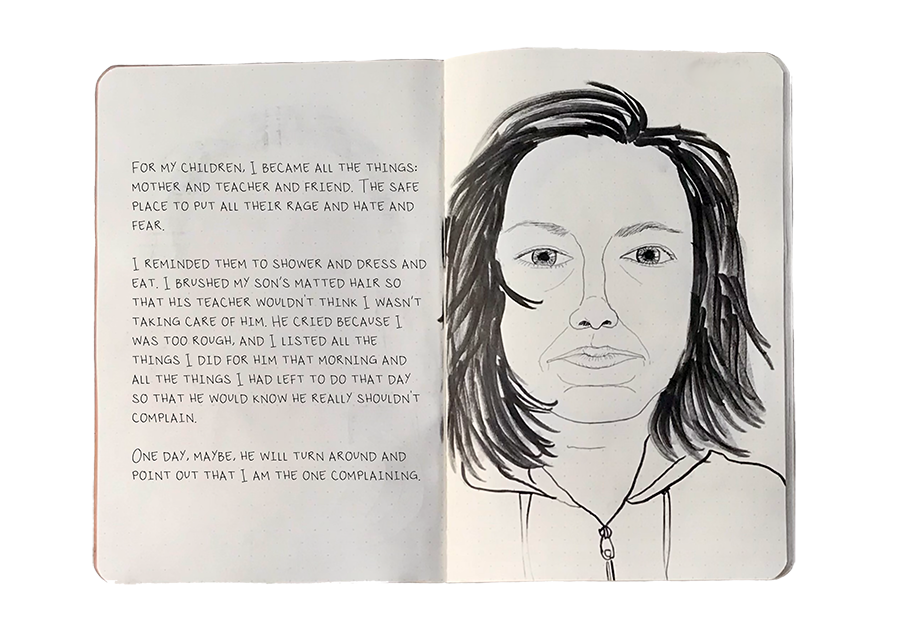 FOR MY CHILDREN, I BECAME ALL THE THINGS:
MOTHER AND TEACHER AND FRIEND. THE SAFE
PLACE TO PUT ALL THEIR RAGE AND HATE AND
FEAR.
I REMINDED THEM TO SHOWER AND DRESS AND
EAT. I BRUSHED MY SON'S MATTED HAIR SO
THAT HIS TEACHER WOULDN'T THINK I WASN'T
TAKING CARE OF HIM. HE CRIED BECAUSE I
WAS TOO ROUGH, AND I LISTED ALL THE
THINGS I DID FOR HIM THAT MORNING AND
ALL THE THINGS I HAD LEFT TO DO THAT DAY
SO THAT HE WOULD KNOW HE REALLY SHOULDN'T
COMPLAIN.
ONE DAY, MAYBE, HE WILL TURN AROUND AND
POINT OUT THAT I AM THE ONE COMPLAINING.